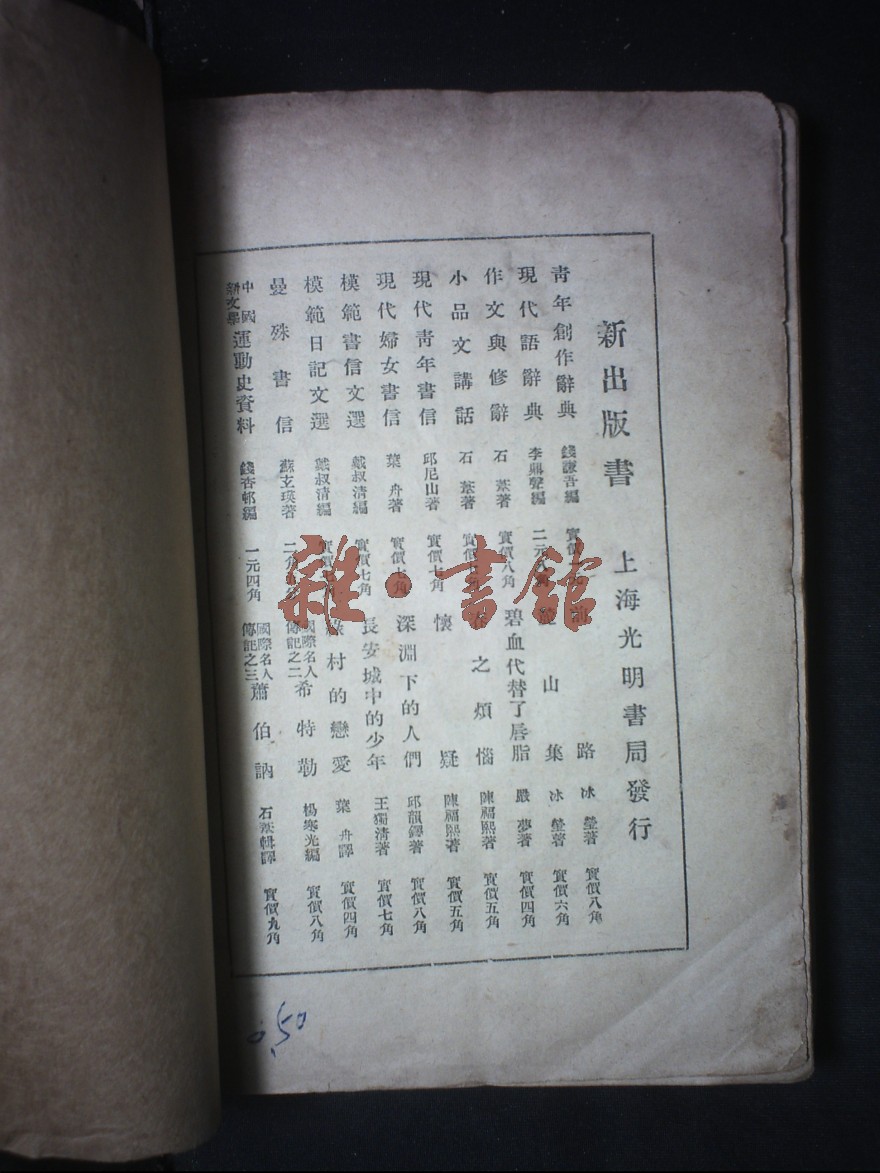 新出版書 上海光明書局發行
青年創作辭典 錢謙吾編 實價
現代語辭典 李鼎聲編 二元
作文與修辭 石葦著 實價八角
小品文講話 石葦著 實價
現代青年書信 邱尼山著 實價七角
現代婦女書信 葉舟著 實價七角
模範書信文選 戴叔清編 實價七角
模範日記文選 戴叔清編 實價
曼殊書信 蘇玄瑛著 二角
中國新文學運動史資料 錢杏邨編 一元四角
路 冰瑩著 實價八角
山集 冰瑩著 實價六角
碧血代替了唇脂 嚴夢著 實價四角
之煩惱 陳福熙著 實價五角
懷疑 陳福熙著 實價五角
深淵下的人們 邱韻鐸著 實價八角
長安城中的少年 王獨清著 實價七角
村的戀愛 葉舟譯 實價四角
國際名人傳記之二 希特勒 楊寒光編 實價八角
國際名人傳記之三 蕭伯訥 石葦輯譯 實價九角
雜·書館
0.50